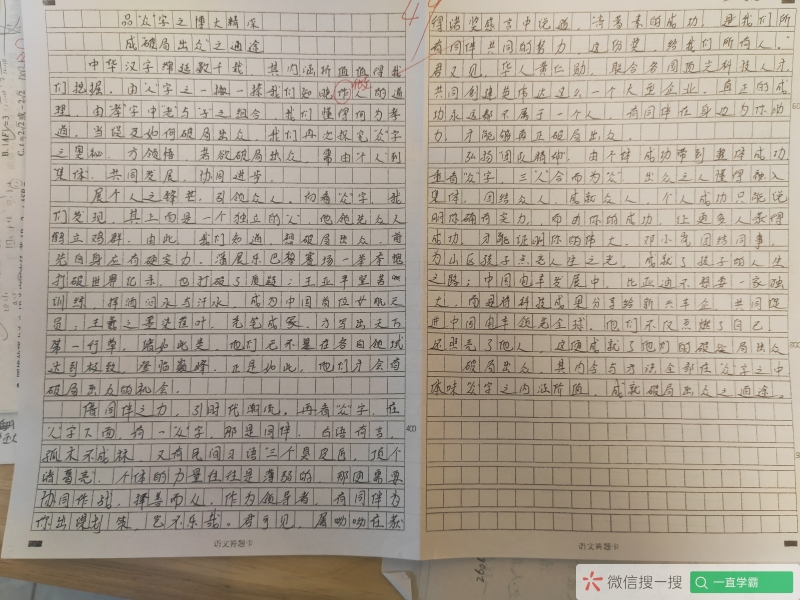 品“众”字之博大精深
成破局出众之通途
中华汉字绵延数千载，其内涵价值值得我
们挖掘。由“人”字之一撇一捺我们知晓作人的道
理，由“孝”字中“老”与“子”之组合，我们懂得何为孝
道。当促及如何破局出众，我们再次探究“众”字
之奥秘，方领悟，若欲破局出众，需由个人到
集体，共同发展，协同进步。
展个人之锋芒，引领众人。初看“众”字，我
们发现，其上面是一个独立的“人”，他领先众人
鹤立鸡群。由此，我们知道，想破局出众，首
先自身应有硬实力。潘展乐巴黎赛场一举夺魁
打破世界纪录，也打破了质疑；王亚平坚苦
训练，挥洒泪水与汗水，成为中国首位女航天
员；王羲之墨染蕉叶，秃笔成冢，方写出天下
第一行草，诸如此类，他们无不是在各自领域
达到极致，登临巅峰，正是如此，他们才会有
破局出众的机会。
借同伴之力，引时代潮流。再看“众”字，在
“人”字下面，有一“从”字，那是同伴。古语有言，
孤木不成林，又有民间习语“三个臭皮匠，顶个
诸葛亮”，个体的力量往往是薄弱的，那便需要
协同作战，择善而从，作为领导者，有同伴为
你出谋划策，岂不乐哉。君可见，屠呦呦在获
得诺奖感言中说道，“青蒿素的成功，是我们所
有同伴共同的努力，这份奖，给我们所有人。”
君又见，华人黄仁勋，联合各国顶尖科技人才
共同创建英伟达这么一个大型企业。真正的成
功永远都不属于一个人，有同伴在身边为你助
力，才能够真正破局出众。
弘扬团队精神，由个体成功带到整体成功。
重看“众”字，三“人”合而为“众”，出众之人懂得融入
集体，团结众人，成就众人，个人成功只能说
明你确有实力，而由你的成功，让更多人获得
成功，才能证明你的伟大。邓小岚团结同事，
为山区孩子点亮人生之光，成就了孩子的人生
之路；中国电车发展中，比亚迪不想要一家独
大，而是将科技成果分享给新兴车企，共同促
进中国电车领先全球。他们不仅点燃了自己，
还照亮了他人，这便成就了他们的破局出众
破局出众，其内含与方法全部在“众”字之中
细味“众”字之内涵价值，成就破局出众之通途。
400
600
800
语文答题卡
语文答题卡
微信搜一搜
一直学霸